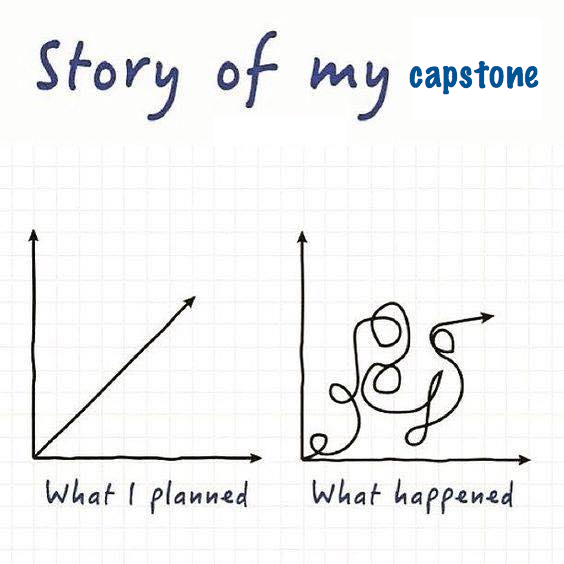 Story of my capstone
What I planned
What happened